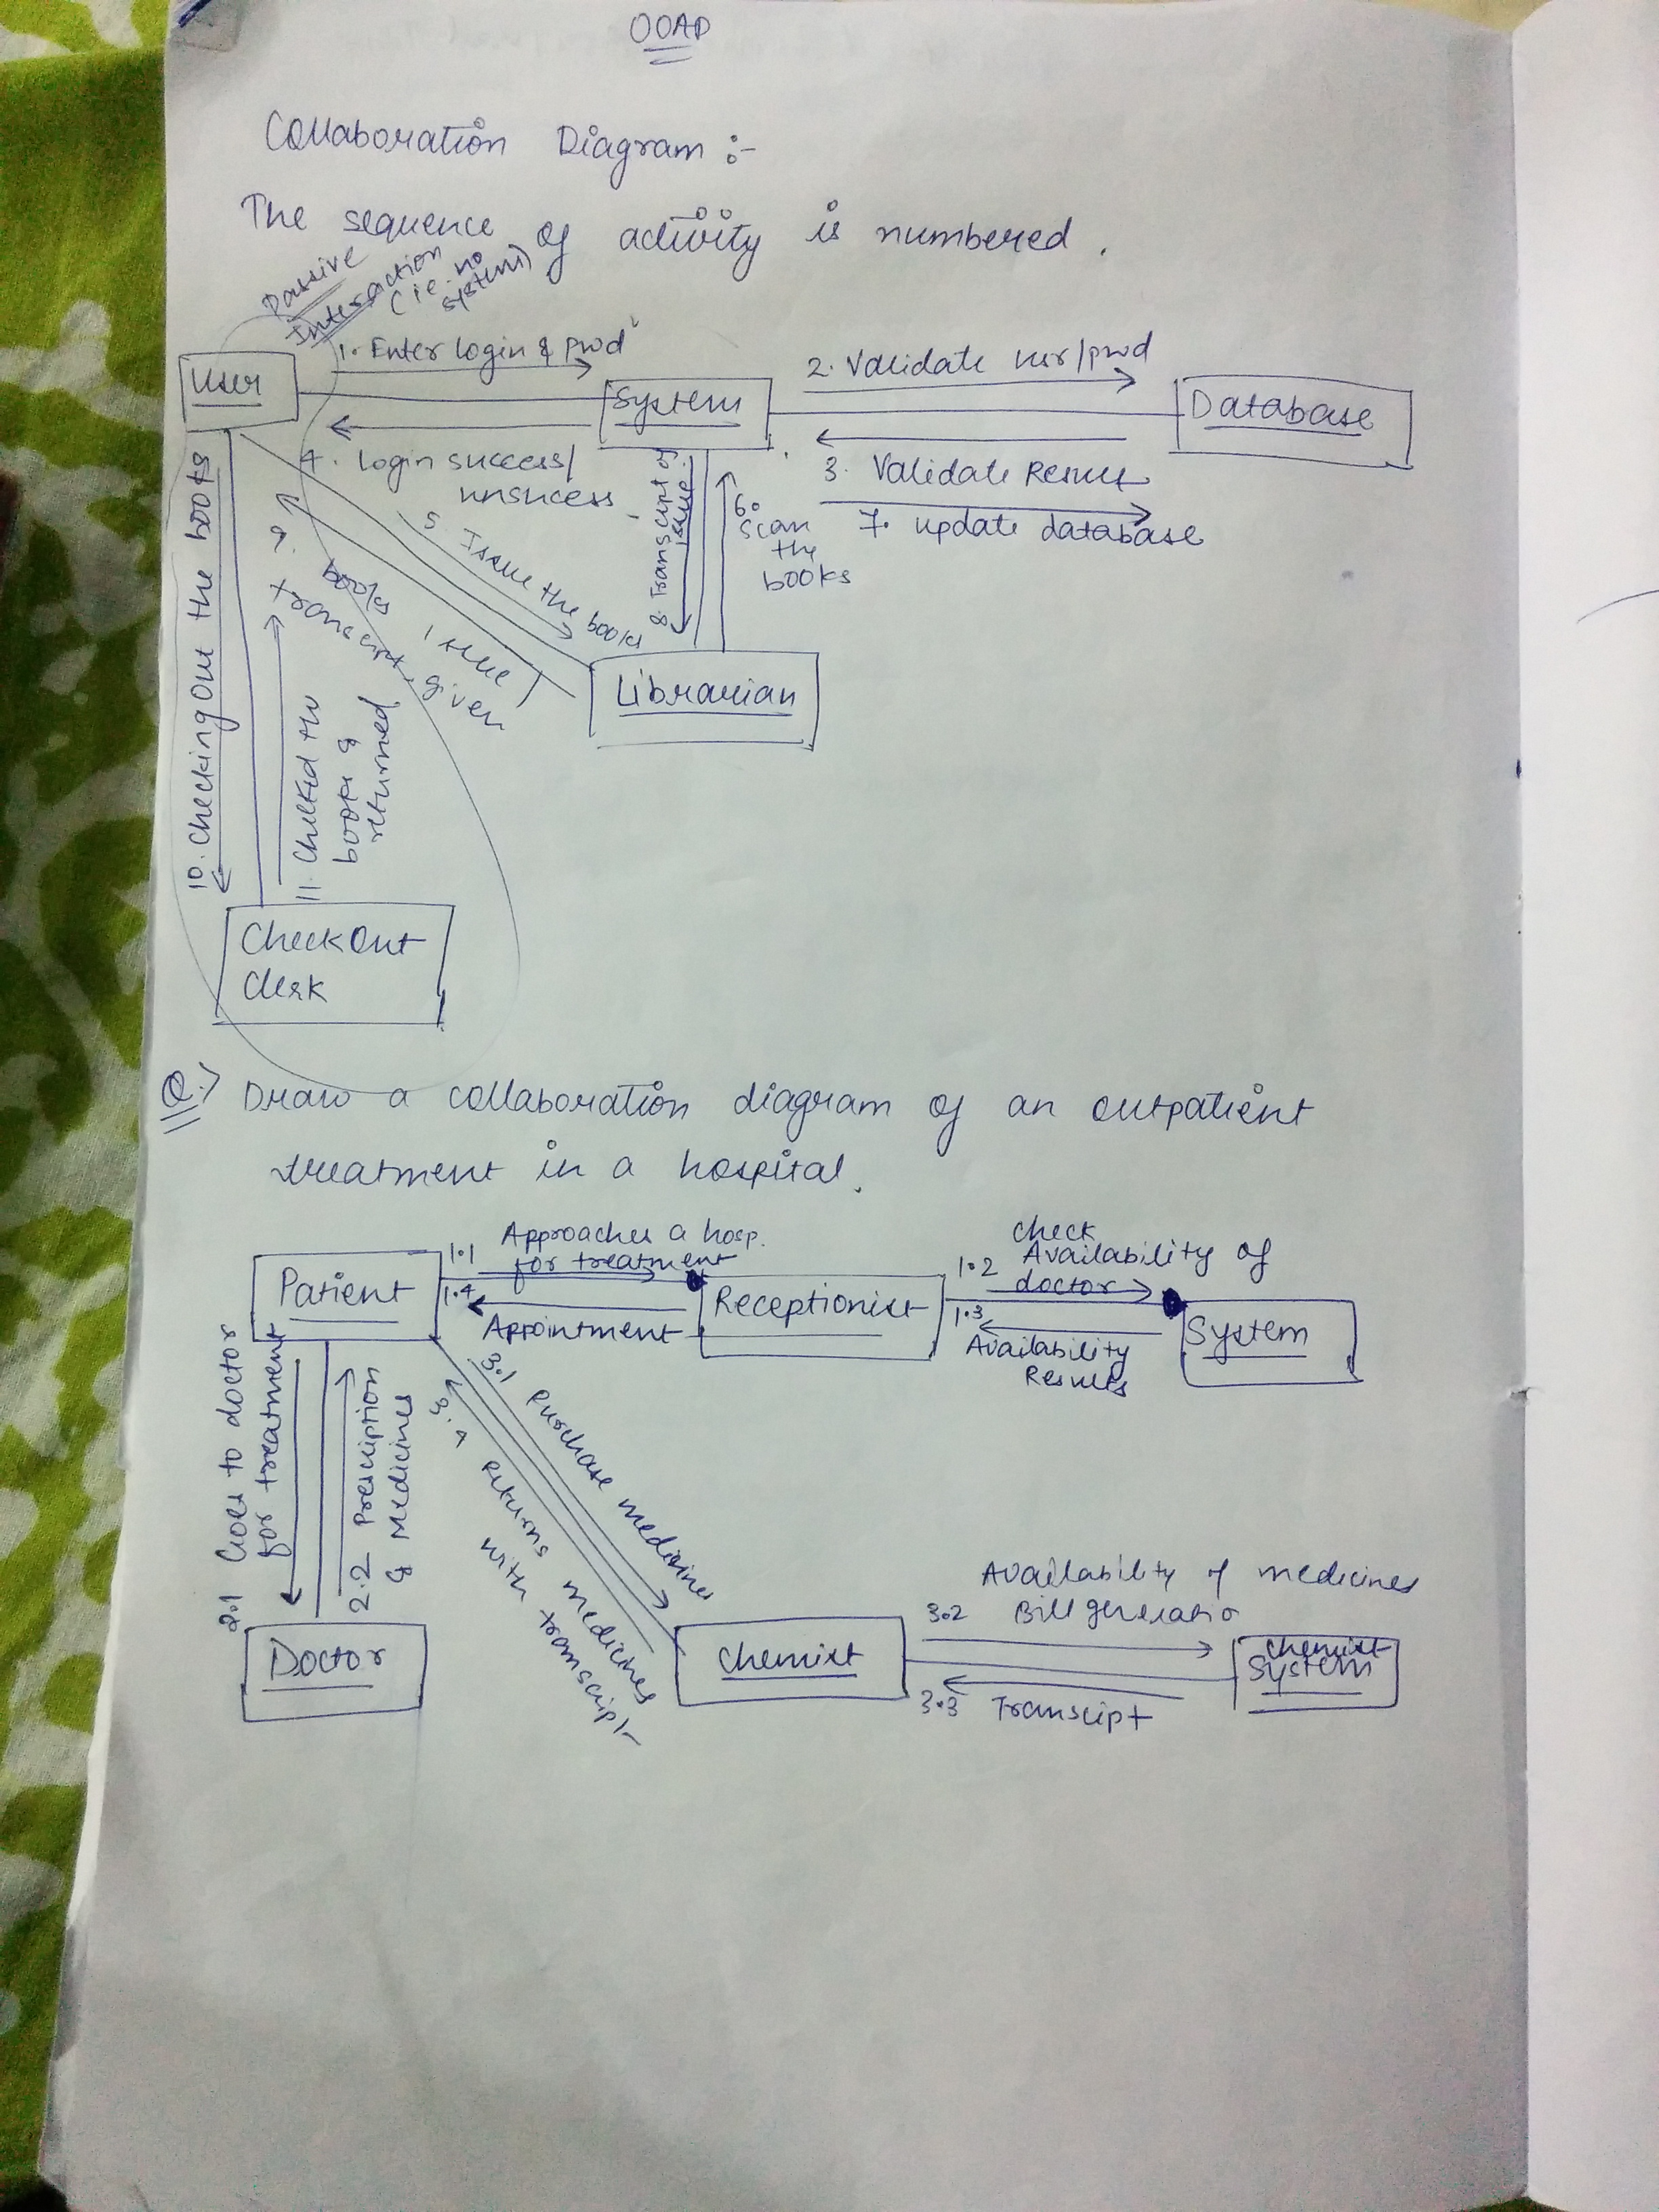 OOAD
Collaboration Diagram :-
The sequence of activity is numbered.
Passive
Interaction
(ie. no
system)
1. Enter login & pwd
User
System
2. Validate usr/pwd
Database
4. login success/
unsucess
3. Validate Result
7. update database
5. Issue the books
8. Transcipt of
issue.
6.
Scan
the
books
9. books issue
transcipt given
Librarian
10. Checking Out the books
11. Checked the
books &
returned
CheckOut
Clerk
Q.> Draw a collaboration diagram of an outpatient
treatment in a hospital.
1.1 Approaches a hosp.
for treatment
Patient
1.4
Appointment
Receptionist
1.2 check
Availability of
doctor
1.3
Availability
Results
System
2.1 Goes to doctor
for treatment
2.2 Presciption
& Medicines
3.1 purchase medicines
3.4 returns medicines
with transcipt
Doctor
Chemist
Availability of medicines
3.2 Bill generatio
Chemist
System
3.3 Transcipt